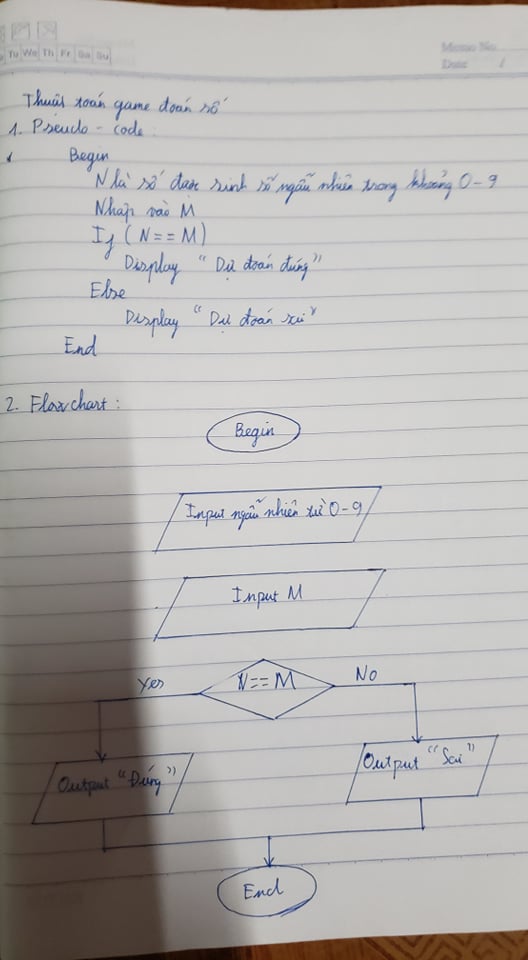 Tu We Th Fr Sa Su
Memo No.
Date /
Thuật toán game đoán số
1. Pseudo - code :
Begin
N là số được sinh số ngẫu nhiên trong khoảng 0 - 9
Nhập vào M
If ( N == M )
Display " Dự đoán đúng "
Else
Display " Dự đoán sai "
End
2. Flowchart :
Begin
Input ngẫu nhiên từ 0 - 9
Input M
N == M
Yes
No
Output " Đúng "
Output " Sai "
End